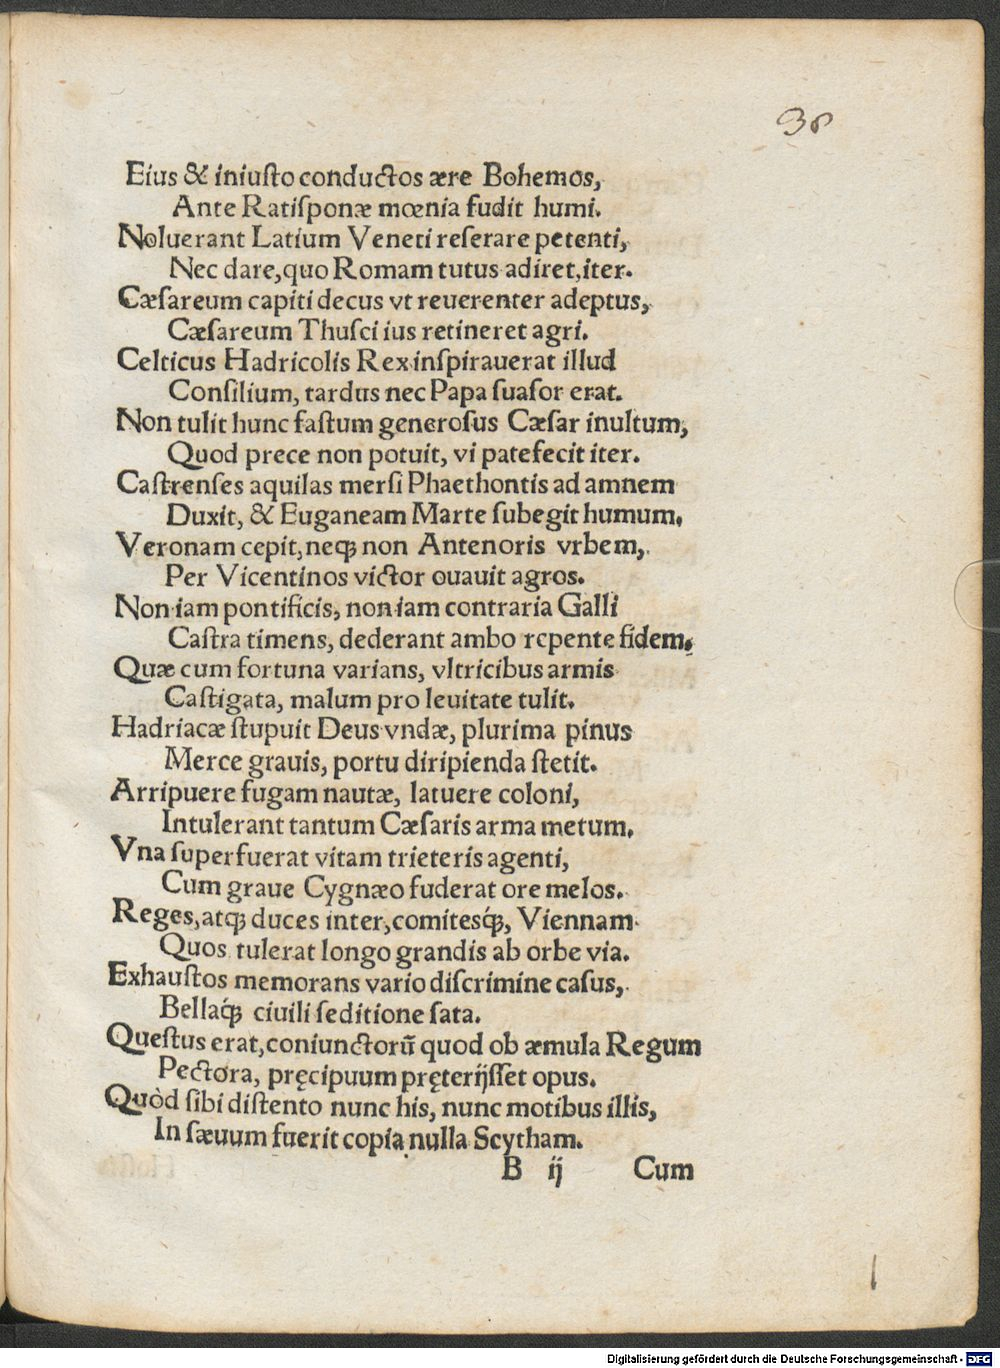 38
Eius & iniusto conductos ære Bohemos,
Ante Ratiſponæ mœnia fudit humi.
Noluerant Latium Veneti reſerare petenti,
Nec dare, quo Romam tutus adiret, iter.
Cæſareum capiti decus vt reuerenter adeptus,
Cæſareum Thuſci ius retineret agri.
Celticus Hadricolis Rex inſpirauerat illud
Conſilium, tardus nec Papa suaſor erat.
Non tulit hunc faſtum generoſus Cæſar inultum,
Quod prece non potuit, vi patefecit iter.
Caſtrenſes aquilas merſi Phaethontis ad amnem
Duxit, & Euganeam Marte ſubegit humum.
Veronam cepit, neqꝫ non Antenoris vrbem,
Per Vicentinos victor ouauit agros.
Non iam pontificis, non iam contraria Galli
Caſtra timens, dederant ambo repente fidem.
Quæ cum fortuna varians, vltricibus armis
Caſtigata, malum pro leuitate tulit.
Hadriacæ ſtupuit Deus vndæ, plurima pinus
Merce grauis, portu diripienda ſtetit.
Arripuere fugam nautæ, latuere coloni,
Intulerant tantum Cæſaris arma metum.
Vna ſuperfuerat vitam trieteris agenti,
Cum graue Cygnæo fuderat ore melos.
Reges, atqꝫ duces inter, comitesq́ꝫ, Viennam
Quos tulerat longo grandis ab orbe via.
Exhauſtos memorans vario diſcrimine caſus,
Bellaq́ꝫ ciuili ſeditione ſata.
Queſtus erat, coniunctorū quod ob æmula Regum
Pectora, pręcipuum pręterijſſet opus.
Quòd ſibi diſtento nunc his, nunc motibus illis,
In ſæuum fuerit copia nulla Scytham.
B ij Cum
Digitalisierung gefördert durch die Deutsche Forschungsgemeinschaft - DFG